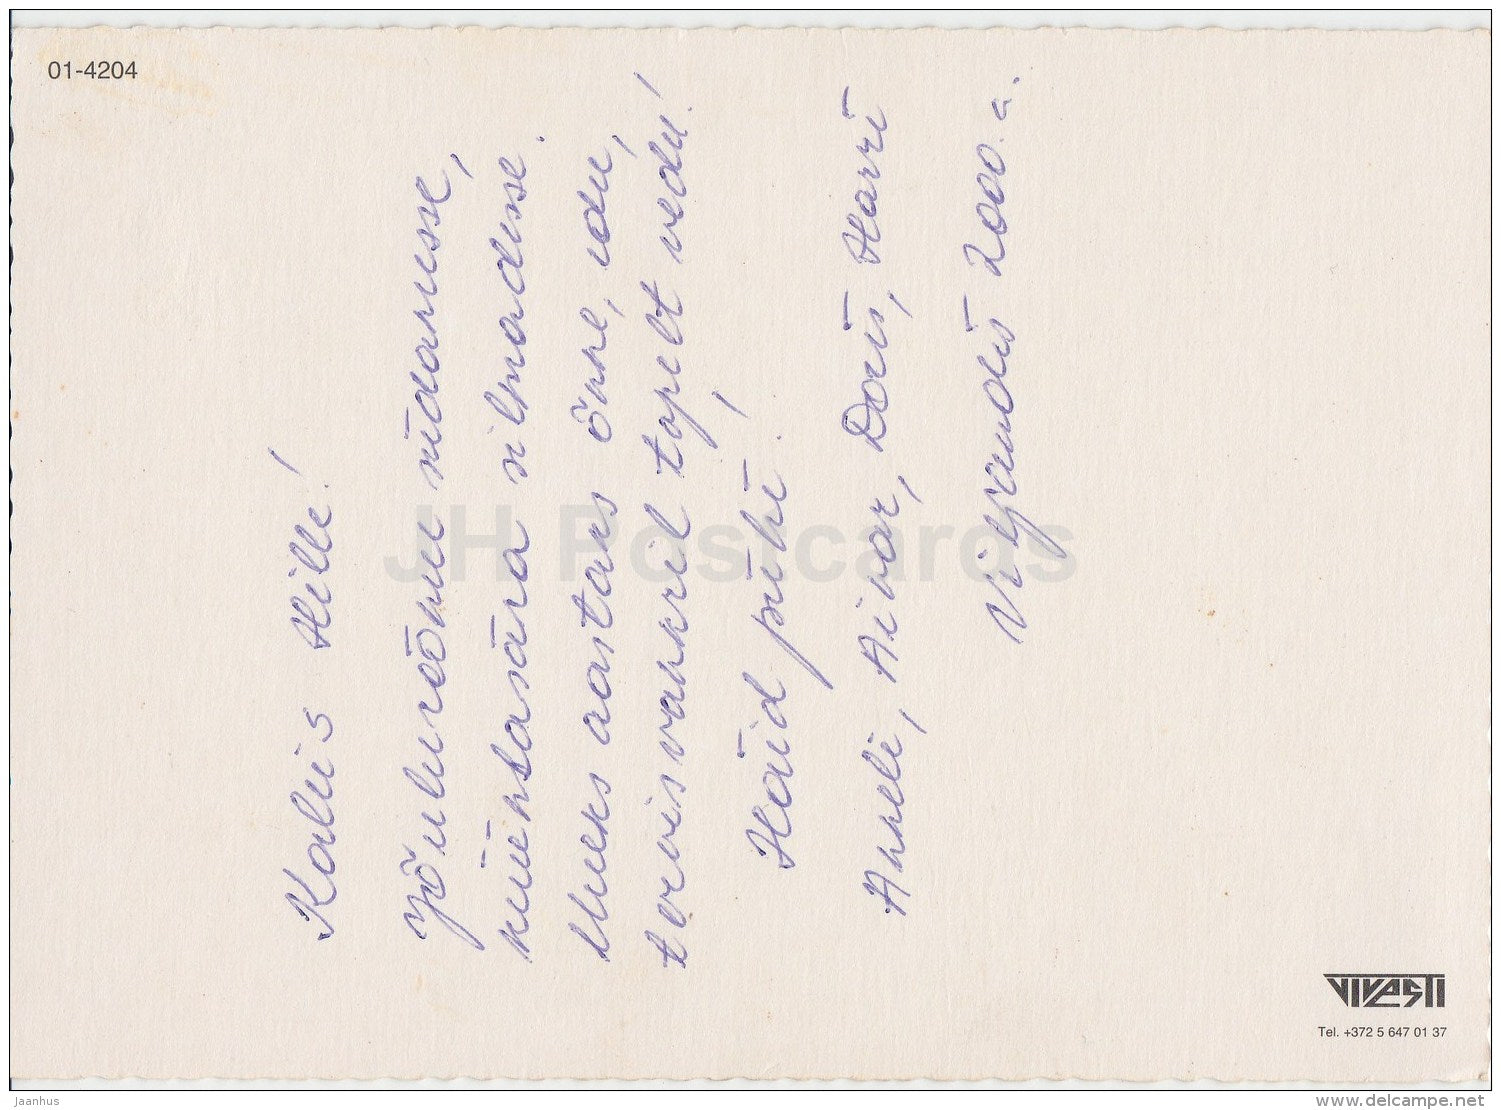 01-4204
Kallis Hille!
Jõulurõõmu südamesse,
küünlasära silmadesse.
Uueks aastaks õnne, edu,
tervisvankril topelt vedu!
Häid pühi!
Anneli, Aivar, Doris, Harri
Viljandis 2000. a.
VIVESTI
Tel. +372 5 647 01 37
JH Postcards
Jaanhus
www.delcampe.net